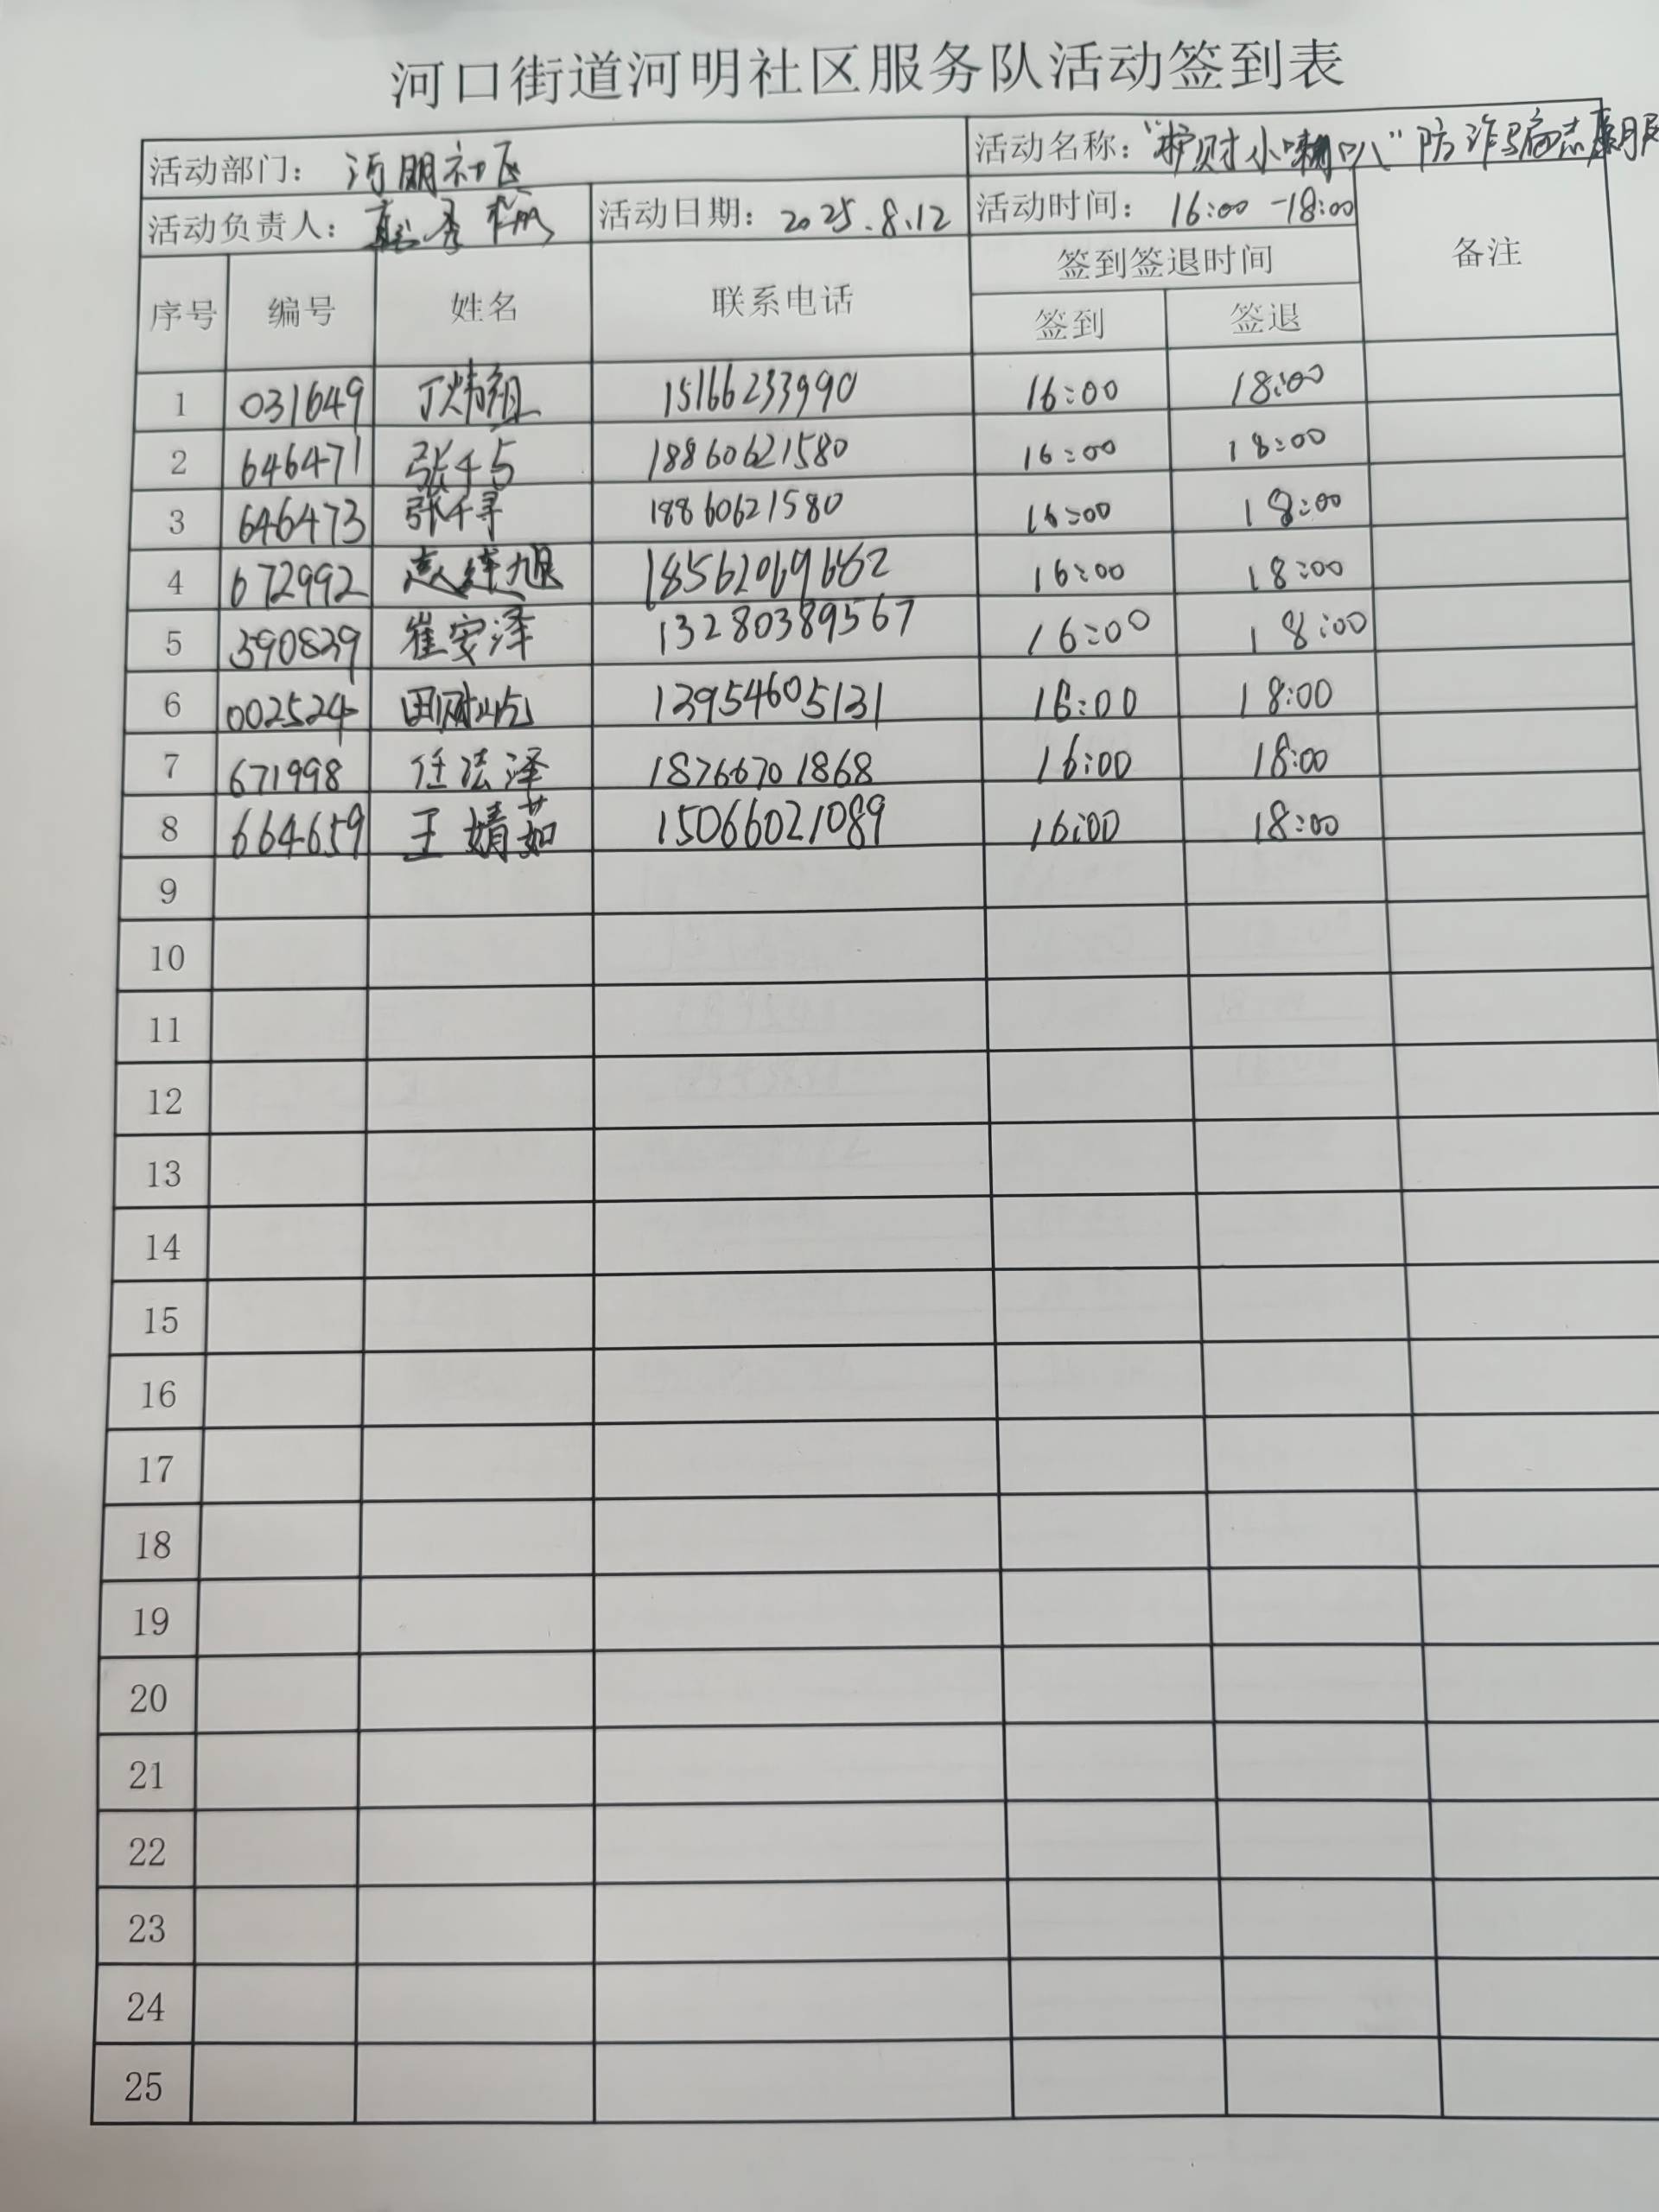 河口街道河明社区服务队活动签到表
活动部门： 河明社区 活动名称： “护财小喇叭”防诈骗志愿服
活动负责人： 秀梅 活动日期： 2025.8.12 活动时间： 16:00-18:00 备注
序号 编号 姓名 联系电话 签到签退时间
签到 签退
1 031649 丁炜祖 15166233990 16:00 18:00
2 646471 张千与 18860621580 16:00 18:00
3 646473 张千寻 18860621580 16:00 18:00
4 672992 旭 18562069682 16:00 18:00
5 390839 崔安泽 13280389567 16:00 18:00
6 002524 田 13954605131 16:00 18:00
7 671998 任法泽 18766701868 16:00 18:00
8 664659 王婧茹 15066021089 16:00 18:00
9
10
11
12
13
14
15
16
17
18
19
20
21
22
23
24
25